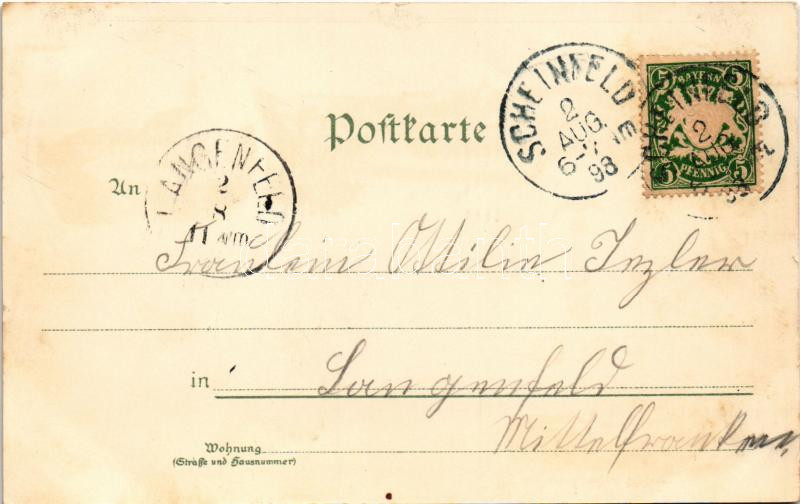 Postkarte
SCHEINFELD
2
AUG.
98
5 BAYERN 5
5 PFENNIG 5
LANGENFELD
2
8
11
An
Fräulein Ottilie Tezler
in Langenfeld
Mittelfranken
Wohnung
(Straße und Hausnummer)